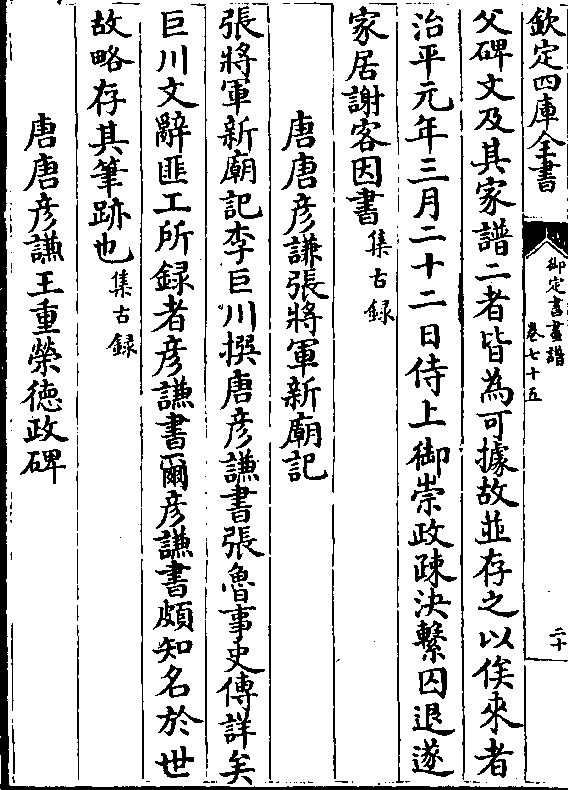 欽定四庫全書
御定書畫譜
卷七十五
二十
父碑文及其家譜二者皆為可據故並存之以俟來者
治平元年三月二十二日侍上御崇政疎決繫囚退遂
家居謝客因書集古録
唐唐彦謙張將軍新廟記
張將軍新廟記李巨川撰唐彦謙書張魯事史傳詳矣
巨川文辭匪工所録者彦謙書爾彦謙書頗知名於世
故略存其筆跡也集古録
唐唐彦謙王重榮德政碑